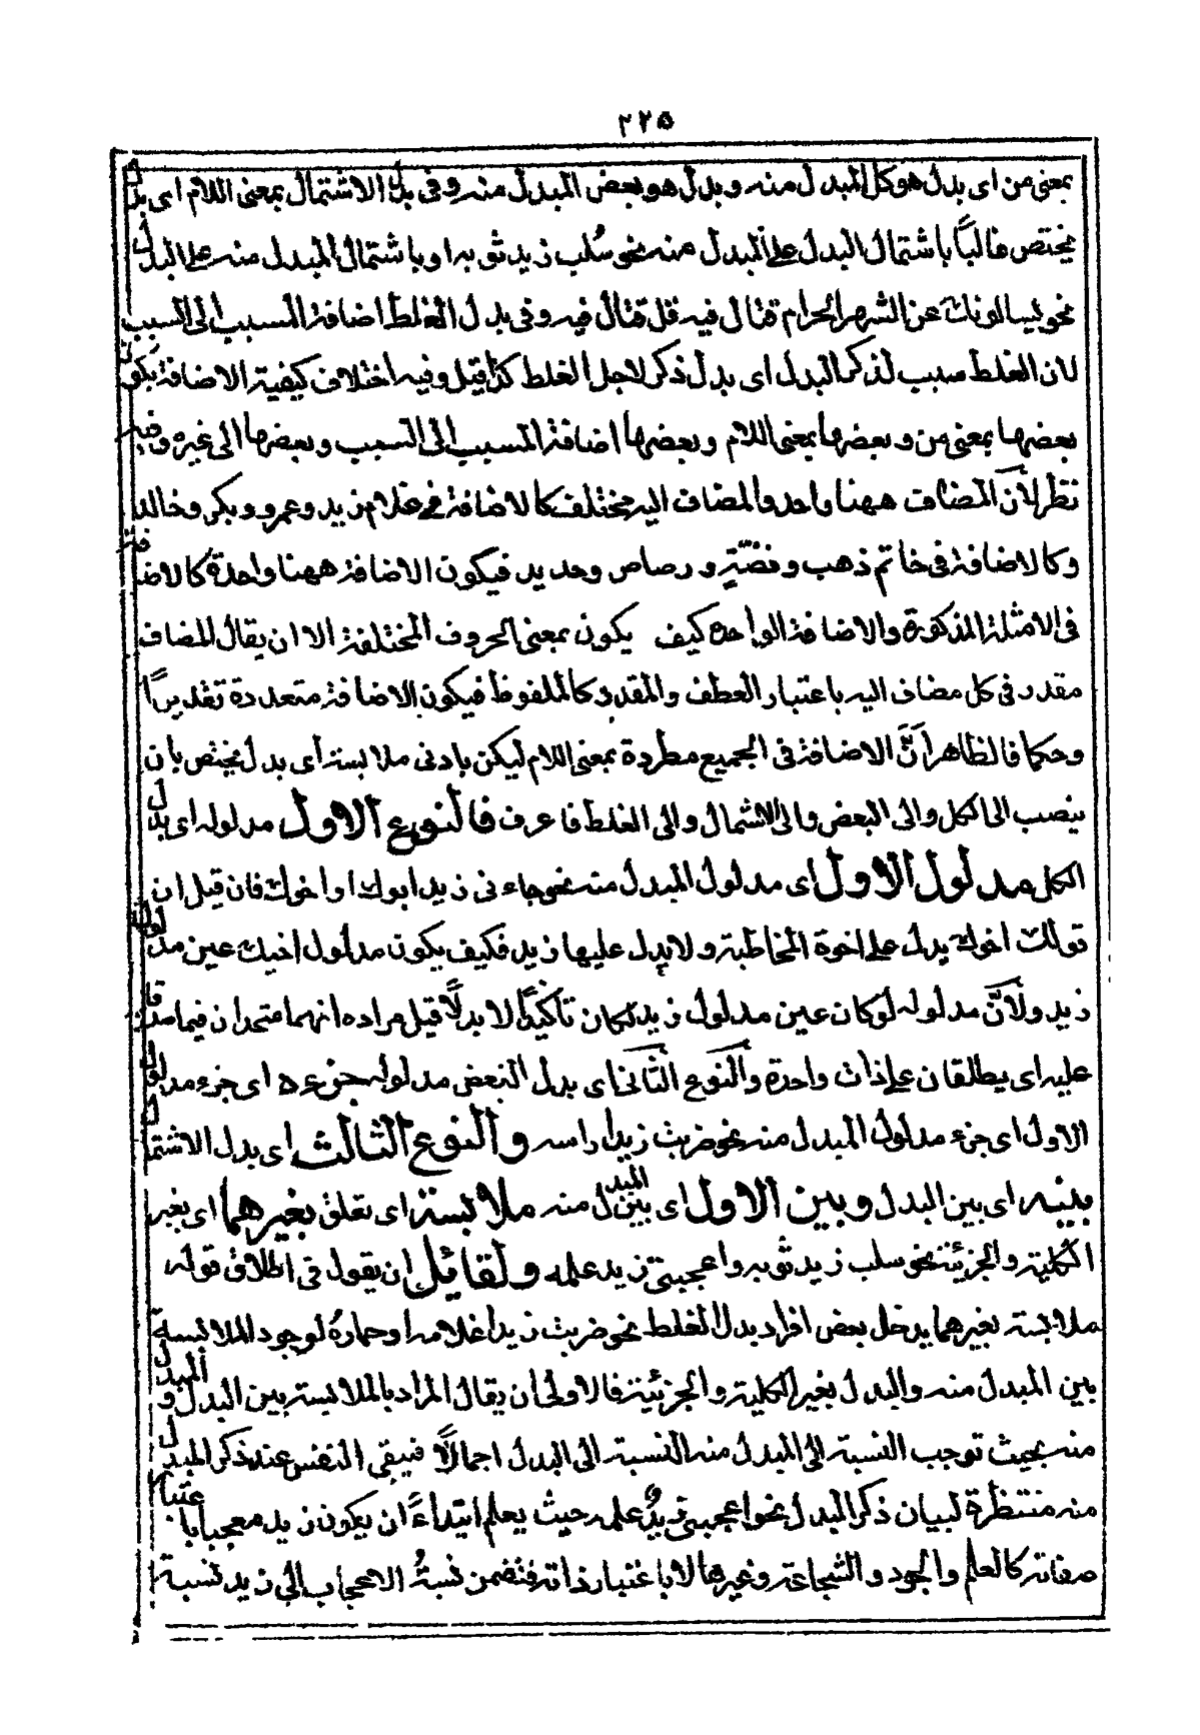 ٢٢٥
بمعنى من اى بدل هو كل المبدل منه وبدل هو بعض المبدل منه وفى بدل الاشتمال بمعنى اللام اى بدل
يختص غالباً باشتمال البدل على المبدل منه نحو سُلب زيد ثوبه او باشتمال المبدل منه على البدل
نحو يسالونك عن الشهر الحرام قتال فيه قل قتال فيه وفى بدل الغلط اضافة المسبب الى السبب
لان الغلط سبب لذكر البدل اى بدل ذكر لاجل الغلط كذا قيل وفيه اختلاف كيفية الاضافة بكون
بعضها بمعنى من وبعضها بمعنى اللام وبعضها اضافة المسبب الى السبب وبعضها الى غيره وفيه
نظر لأن المضاف ههنا واحد والمضاف اليه مختلف كالاضافة فى غلام زيد وعمرو وبكر وخالد
وكالاضافة فى خاتم ذهب وفضّةٍ ورصاص وحديد فيكون الاضافة ههنا واحدة كالاضافة
فى الامثلة المذكورة والاضافة الواحدة كيف يكون بمعنى الحروف المختلفة الا ان يقال المضاف
مقدر فى كل مضاف اليه باعتبار العطف والمقدر كالملفوظ فيكون الاضافة متعددة تقديراً
وحكما فالظاهر أنَّ الاضافة فى الجميع مطردة بمعنى اللام ليكن بادنى ملابسة اى بدل يختص بان
ينصب الى الكل والى البعض والى الاشتمال والى الغلط فاعرف فالنوع الاول مدلوله اى بدل
الكل مدلول الاول اى مدلول المبدل منه نحو جاءنى زيد ابوك او اخوك فان قيل ان
قولك اخوك يدل على اخوة المخاطبة ولا يدل عليها زيد فكيف يكون مدلول اخيك عين مدلول
زيد ولأنّ مدلوله لو كان عين مدلول زيد لكان تأكيدًا لا بدلًا قيل مراده انهما متحدان فيما صدقا
عليه اى يطلقان على ذات واحدة والنوع الثانى اى بدل البعض مدلوله جزءه اى جزء مدلول
الاول اى جزء مدلول المبدل منه نحو ضربت زيدا راسه والنوع الثالث اى بدل الاشتمال
بينه اى بين البدل وبين الاول اى بين المبدل منه ملابسة اى تعلق بغيرهما اى بغير
الكلية والجزئية نحو سلب زيد ثوبه واعجبنى زيد علمه ولقائل ان يقول فى اطلاق قوله
ملابسة بغيرهما يدخل بعض افراد بدل الغلط نحو ضربت زيدا غلامه او حمارهُ لوجود الملابسة
بين المبدل منه والبدل بغير الكلية والجزئية فالاولى ان يقال المراد بالملابسة بين البدل والمبدل
منه بحيث توجب النسبة الى المبدل منه النسبة الى البدل اجمالًا فتبقى النفس عند ذكر المبدل
منه منتظرة لبيان ذكر البدل نحو اعجبنى زيدٌ علمه حيث يعلم ابتداءً ان يكون زيد معجبا باعتبار
صفاته كالعلم والجود والشجاعة وغيرها لا باعتبار ذاته فتضمن نسبةُ الاعجاب الى زيد نسبة